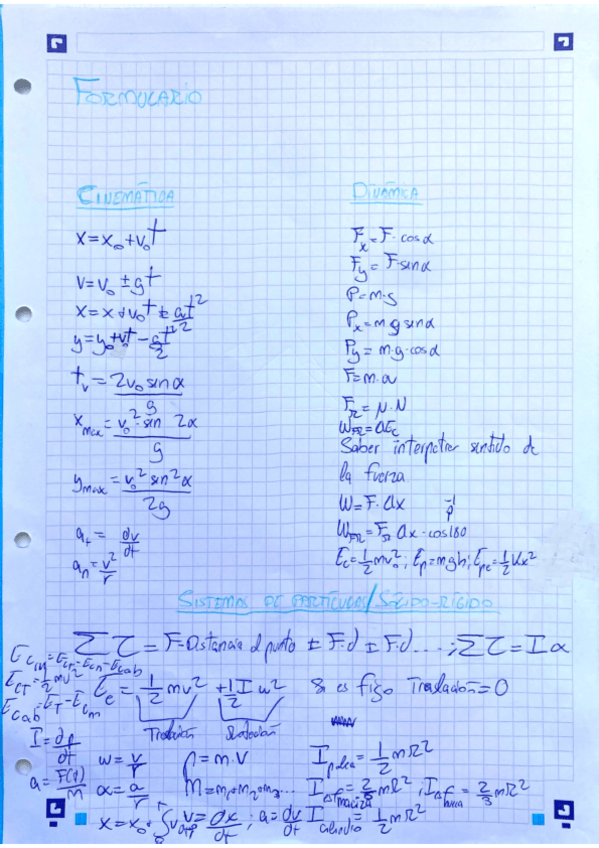 FORMULARIO
CINEMÁTICA
x = x₀ + v₀t
v = v₀ ± gt
x = x + v₀t ± at²/2
y = y₀ + v₀t - at²/2
t_v = 2v₀ sin α / g
x_max = v₀² · sin 2α / g
y_max = v₀² sin² α / 2g
a_t = dv/dt
a_n = v²/r
DINÁMICA
F_x = F · cos α
F_y = F · sin α
P = m·g
P_x = m g sin α
P_y = m·g·cos α
F = m·a
F_R = μ·N
W_FR = ΔE_c
Saber interpetrer sentido de
la fuerza
W = F·Δx
W_FR = F_R Δx · cos180
-1
E_c = 1/2 mv₀²; E_p = mgh; E_pe = 1/2 Kx²
SISTEMAS DE PARTÍCULAS/SÓLIDO-RÍGIDO
Σ τ = F·Distancia al punto ± F·d ± F·d ...; Σ τ = I α
E_cT = 1/2 mv²
E_c = 1/2 mv² + 1/2 I ω² Si es fijo Traslación = 0
Traslación Rotación
I = dp/dt
ω = v/r
p = m·v
I polea = 1/2 mR²
a = F(t)/M
α = a/r
M = m₁+m₂+m₃...
I esf maciza = 2/5 mR², I esf hueca = 2/3 mR²
x = x₀ +
v = dx/dt; a = dv/dt
I cilindro = 1/2 mR²